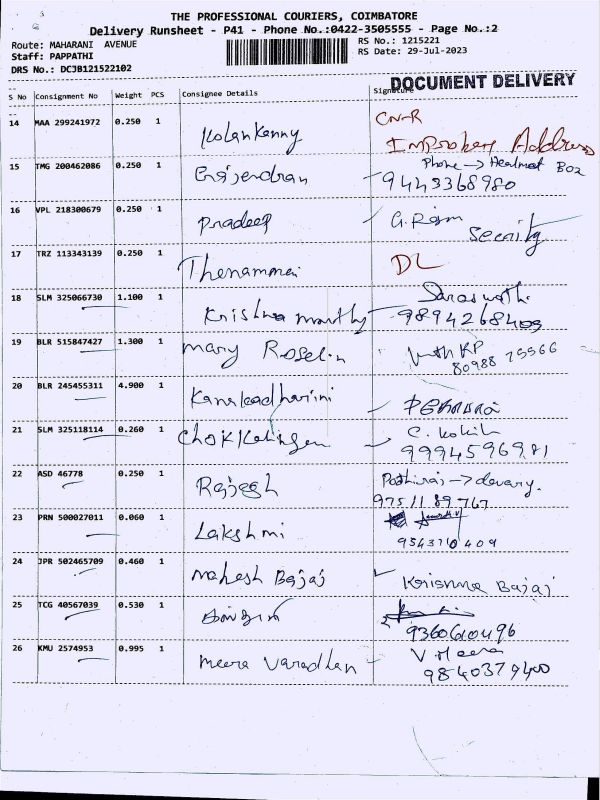 THE PROFESSIONAL COURIERS, COIMBATORE
Delivery Runsheet - P41 - Phone No.:0422-3505555 - Page No.:2
Route: MAHARANI AVENUE
Staff: PAPPATHI
DRS No.: DCJB121522102
RS No.: 1215221
RS Date: 29-Jul-2023
DOCUMENT DELIVERY
S No Consignment No Weight PCS Consignee Details Signature
14 MAA 299241972 0.250 1 Kolankanny CN-R
Address
15 TMG 200462086 0.250 1 Phone → Box
9443368980
16 VPL 218300679 0.250 1 Pradeep G. Ram
17 TRZ 113343139 0.250 1 Thenammai DL
18 SLM 325066730 1.100 1 Krishna
9894268409
19 BLR 515847427 1.300 1 Mary Roselin
80988 75566
20 BLR 245455311 4.900 1
21 SLM 325118114 0.260 1 C. Kokila
9994596981
22 ASD 46778 0.250 1 Rajesh
9751189767
23 PRN 500027011 0.060 1 Lakshmi
9543710409
24 JPR 502465709 0.460 1 Mahesh Bajaj Krishna Bajaj
25 TCG 40567039 0.530 1
9360610496
26 KMU 2574953 0.995 1 Meera Varadhan V. Meera
9840379400